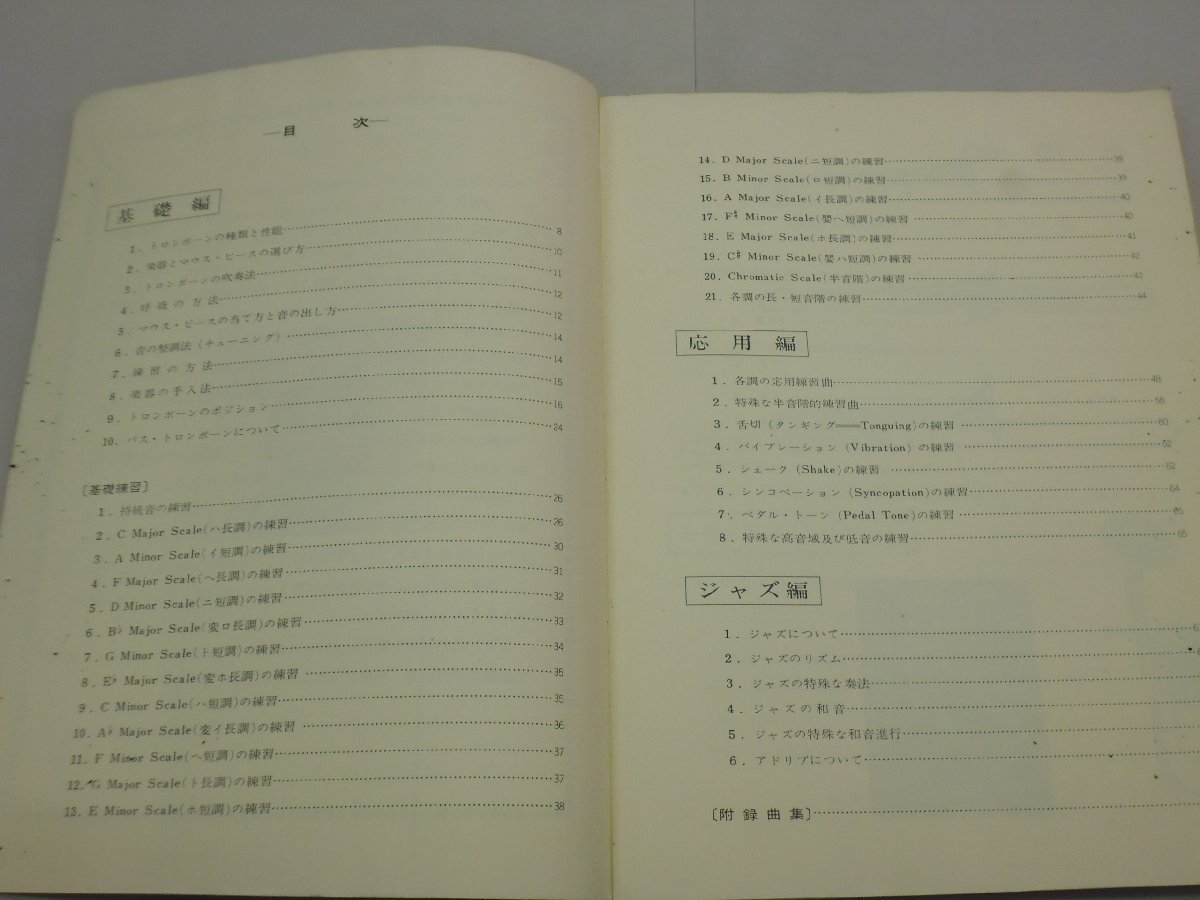 —目 次—
基礎編
1. トロンボーンの種類と性能 8
2. 楽器とマウス・ピースの選び方 10
3. トロンボーンの吹奏法 11
4. 呼吸の方法 12
5. マウス・ピースの当て方と音の出し方 12
6. 音の整調法 (チューニング) 14
7. 練習の方法 14
8. 楽器の手入法 15
9. トロンボーンのポジション 16
10. バス・トロンボーンについて 24
〔基礎練習〕
1. 持続音の練習 26
2. C Major Scale(ハ長調)の練習 26
3. A Minor Scale(イ短調)の練習 30
4. F Major Scale(ヘ長調)の練習 31
5. D Minor Scale(ニ短調)の練習 32
6. B♭ Major Scale(変ロ長調)の練習 33
7. G Minor Scale(ト短調)の練習 34
8. E♭ Major Scale(変ホ長調)の練習 35
9. C Minor Scale(ハ短調)の練習 35
10. A♭ Major Scale(変イ長調)の練習 36
11. F Minor Scale(ヘ短調)の練習 37
12. G Major Scale(ト長調)の練習 37
13. E Minor Scale(ホ短調)の練習 38
14. D Major Scale(ニ短調)の練習 39
15. B Minor Scale(ロ短調)の練習 39
16. A Major Scale(イ長調)の練習 40
17. F♯ Minor Scale(嬰ヘ短調)の練習 40
18. E Major Scale(ホ長調)の練習 41
19. C♯ Minor Scale(嬰ハ短調)の練習 42
20. Chromatic Scale(半音階)の練習 42
21. 各調の長・短音階の練習 44
応用編
1. 各調の応用練習曲 48
2. 特殊な半音階的練習曲 58
3. 舌切 (タンギング—Tonguing)の練習 60
4. バイブレーション (Vibration) の練習 62
5. シェーク (Shake)の練習 62
6. シンコペーション (Syncopation)の練習 64
7. ペダル・トーン (Pedal Tone)の練習 65
8. 特殊な高音域及び低音の練習 65
ジャズ編
1. ジャズについて
2. ジャズのリズム
3. ジャズの特殊な奏法
4. ジャズの和音
5. ジャズの特殊な和音進行
6. アドリブについて
〔附録曲集〕